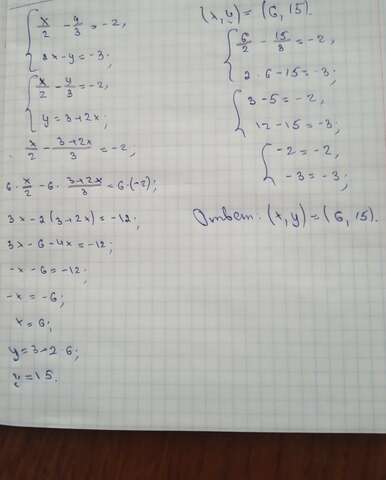 x/2 - y/3 = -2,
2x - y = -3;
x/2 - y/3 = -2,
y = 3 + 2x;
x/2 - (3+2x)/3 = -2;
6 · x/2 - 6 · (3+2x)/3 = 6 · (-2);
3x - 2(3+2x) = -12;
3x - 6 - 4x = -12;
-x - 6 = -12;
-x = -6;
x = 6;
y = 3 + 2 · 6;
y = 15.
(x, y) = (6, 15).
6/2 - 15/3 = -2,
2 · 6 - 15 = -3;
3 - 5 = -2,
12 - 15 = -3;
-2 = -2,
-3 = -3;
Ответ: (x, y) = (6, 15).